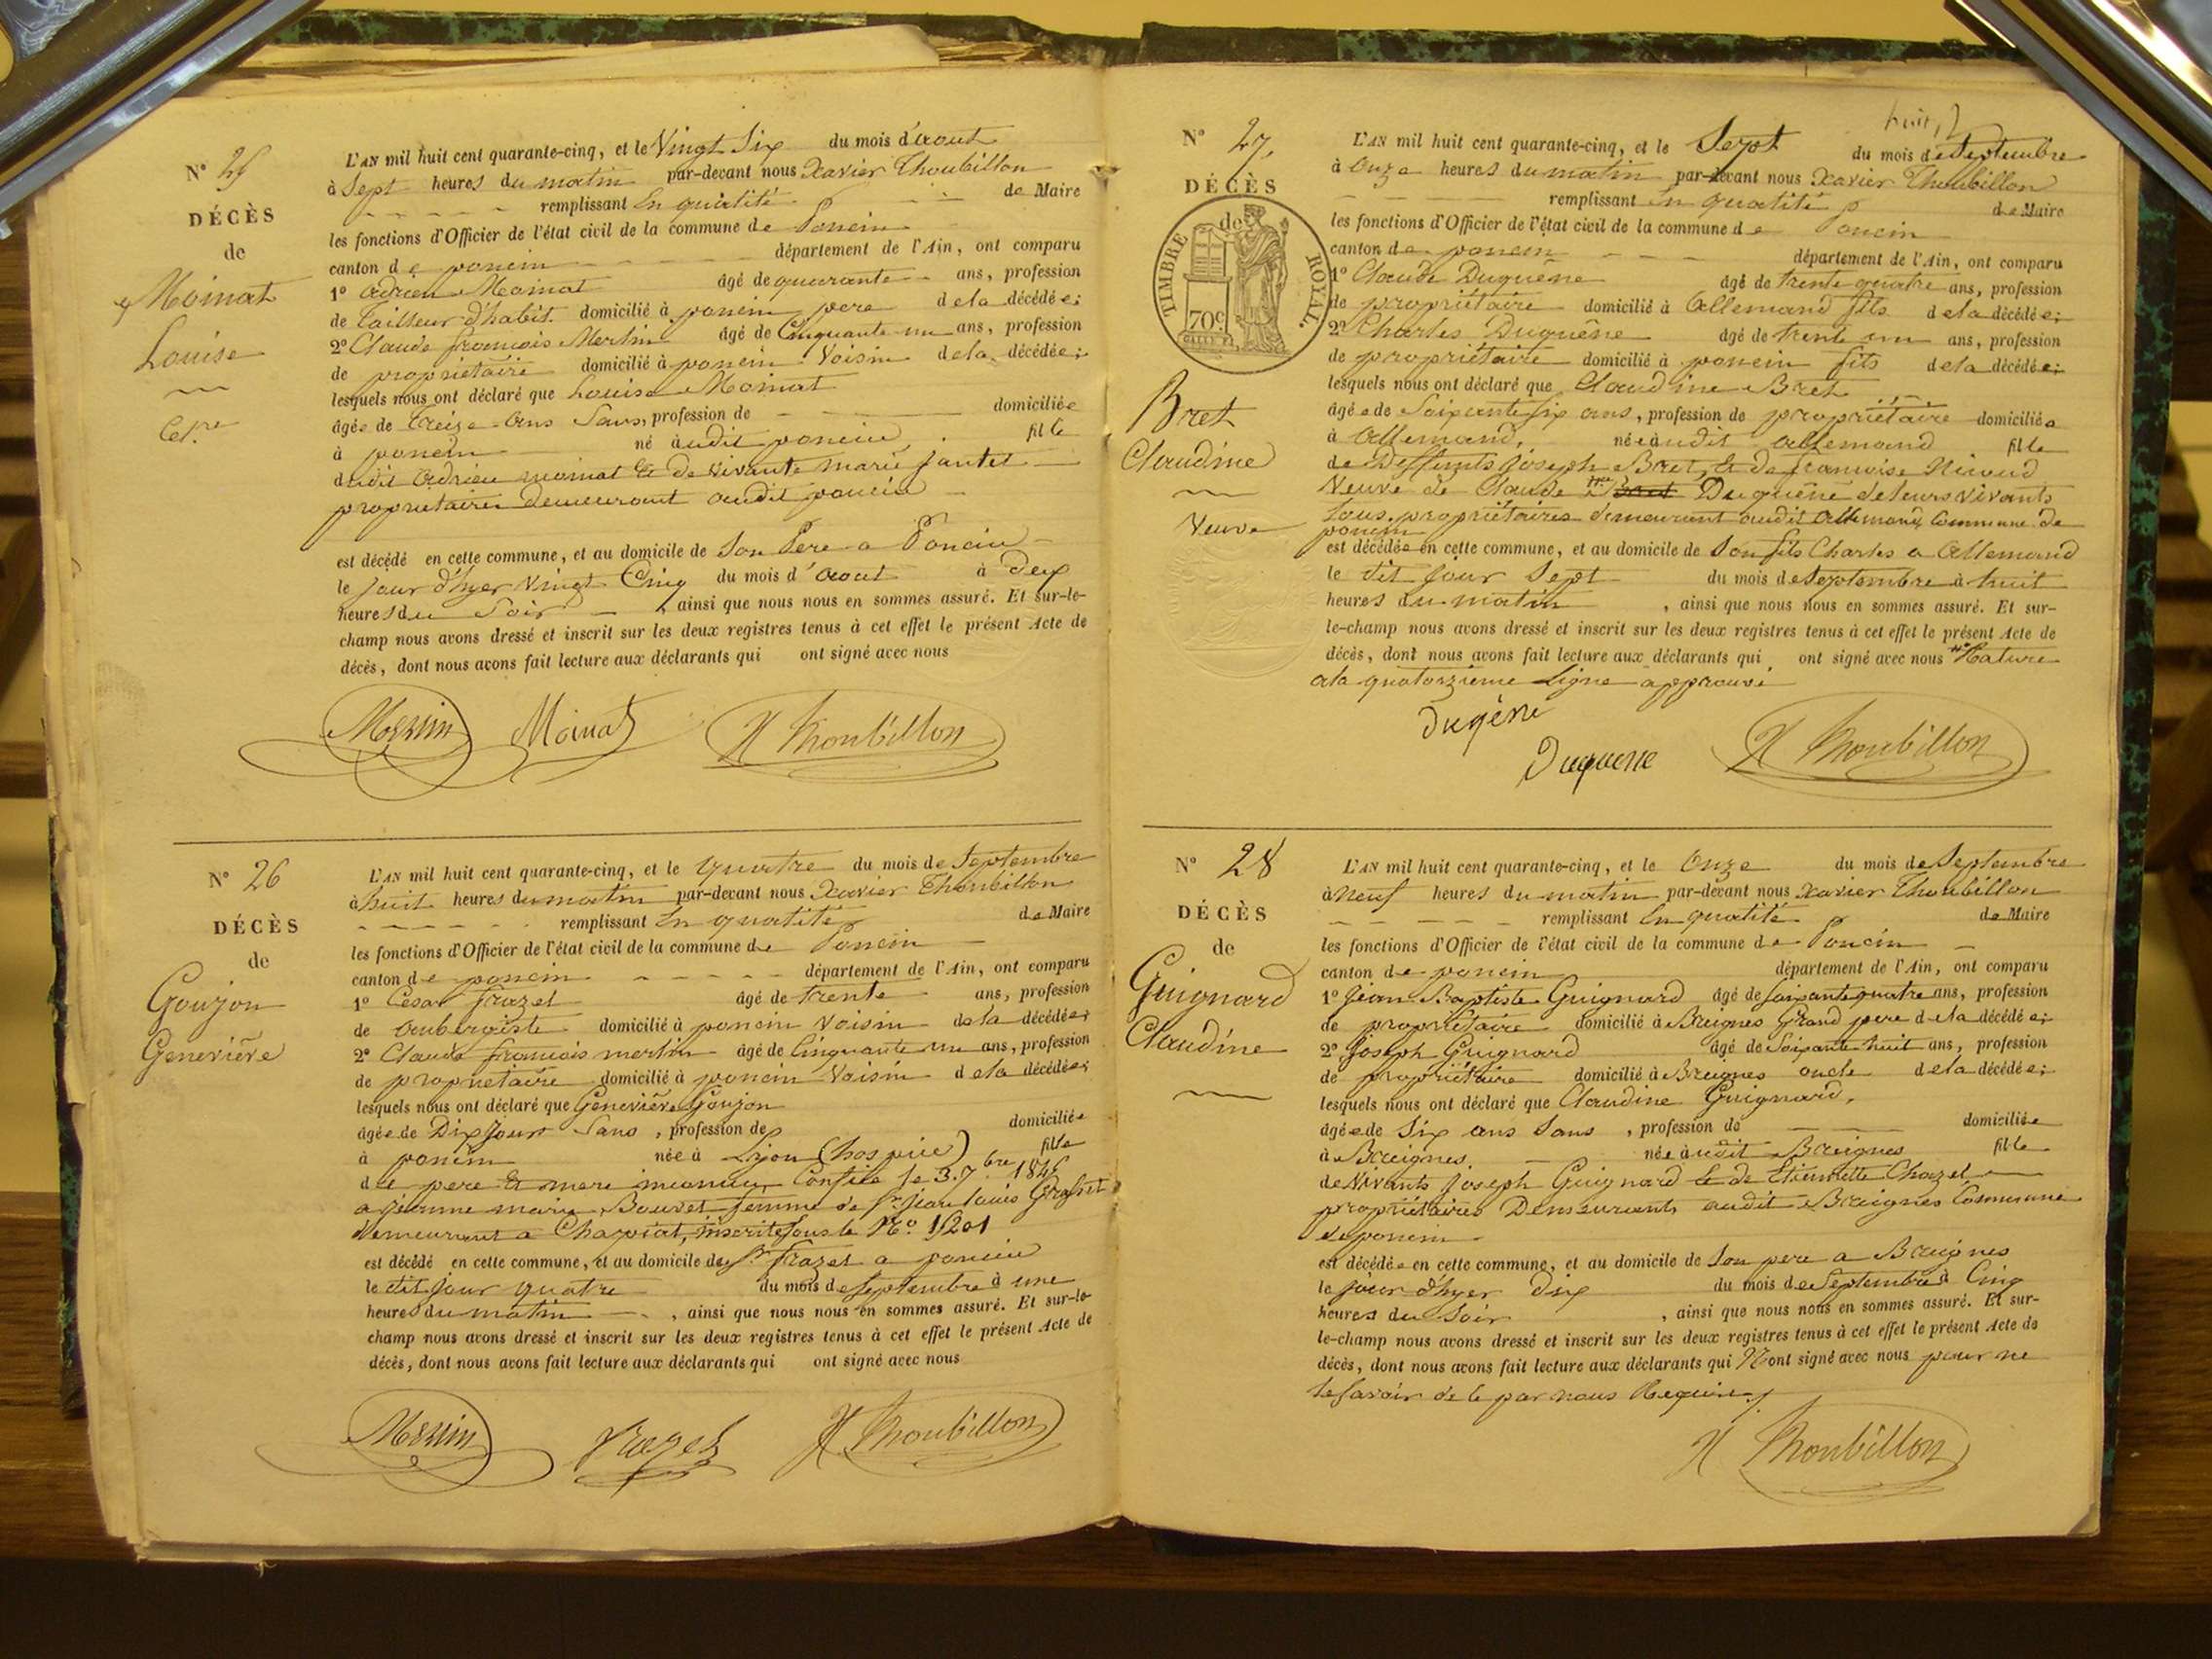 N° 25
DÉCÈS
de
Moinat
Louise
Cel.re
L'AN mil huit cent quarante-cinq, et le Vingt Six du mois d'aout
à Sept heures du matin par-devant nous Xavier Thoubillon
remplissant En qualité de Maire
les fonctions d'Officier de l'état civil de la commune de Poncin
canton de poncin département de l'Ain, ont comparu
1° Adrien Moinat âgé de quarante ans, profession
de tailleur d'habit domicilié à poncin pere de la décédée;
2° Claude francois Merlin âgé de Cinquante un ans, profession
de propriétaire domicilié à poncin Voisin de la décédée;
lesquels nous ont déclaré que Louise Moinat
âgée de treize ans Sans, profession de domiciliée
à poncin né audit poncin, fille
dudit Adrien moinat & de vivante marie
propriétaires demeurant audit poncin
est décédé en cette commune, et au domicile de Son Pere a Poncin
le Jour d'hyer Vingt Cinq du mois d'aout à deux
heures du Soir, ainsi que nous nous en sommes assuré. Et sur-le-
champ nous avons dressé et inscrit sur les deux registres tenus à cet effet le présent Acte de
décès, dont nous avons fait lecture aux déclarants qui ont signé avec nous
Merlin Moinat X Thoubillon
N° 26
DÉCÈS
de
Goujon
Genevière
L'AN mil huit cent quarante-cinq, et le quatre du mois de Septembre
à huit heures du matin par-devant nous Xavier Thoubillon
remplissant En qualité de Maire
les fonctions d'Officier de l'état civil de la commune de Poncin
canton de poncin département de l'Ain, ont comparu
1° César frazet âgé de trente ans, profession
de aubergiste domicilié à poncin Voisin de la décédée;
2° Claude francois merlin âgé de Cinquante un ans, profession
de propriétaire domicilié à poncin Voisin de la décédée;
lesquels nous ont déclaré que Genevière Goujon
âgée de Dix Jours Sans, profession de domiciliée
à poncin née à Lyon (hospice) fille
de pere & mere inconnus Confiée le 3. 7.bre 1845
a jeanne marie Bouvet femme de Sr jean louis
demeurant a Chapiat, inscrite sous le N° 1201
est décédé en cette commune, et au domicile de Sr frazet a poncin
le dit jour quatre du mois de Septembre à une
heures du matin, ainsi que nous nous en sommes assuré. Et sur-le-
champ nous avons dressé et inscrit sur les deux registres tenus à cet effet le présent Acte de
décès, dont nous avons fait lecture aux déclarants qui ont signé avec nous
Merlin frazet X Thoubillon
N° 27.
DÉCÈS
de
TIMBRE ROYAL.
70c
Bret
Claudine
Veuve
L'AN mil huit cent quarante-cinq, et le Sept du mois de Septembre
à onze heures du matin par-devant nous Xavier Thoubillon
remplissant en qualité de Maire
les fonctions d'Officier de l'état civil de la commune de Poncin
canton de poncin département de l'Ain, ont comparu
1° Claude Duquêne âgé de trente quatre ans, profession
de propriétaire domicilié à Allemand fils de la décédée;
2° Charles Duquêne âgé de trente un ans, profession
de propriétaire domicilié à poncin fils de la décédée;
lesquels nous ont déclaré que Claudine Bret
âgée de Soixante Six ans, profession de propriétaire domiciliée
à Allemand, née audit allemand fille
de Deffunts joseph Bret, & de francoise Nivoud
Veuve de Claude Duquêne de leurs vivants
tous propriétaires demeurant audit Allemand Commune de
poncin
est décédée en cette commune, et au domicile de Son fils Charles a Allemand
le dit jour Sept du mois de Septembre à huit
heures du matin, ainsi que nous nous en sommes assuré. Et sur-
le-champ nous avons dressé et inscrit sur les deux registres tenus à cet effet le présent Acte de
décès, dont nous avons fait lecture aux déclarants qui ont signé avec nous Rature
a la quatorzieme Ligne approuvé
Duqêne
Duquene X Thoubillon
N° 28
DÉCÈS
de
Guignard
Claudine
L'AN mil huit cent quarante-cinq, et le Onze du mois de Septembre
à neuf heures du matin par-devant nous Xavier Thoubillon
remplissant En qualité de Maire
les fonctions d'Officier de l'état civil de la commune de Poncin
canton de poncin département de l'Ain, ont comparu
1° Jean Baptiste Guignard âgé de Soixante quatre ans, profession
de propriétaire domicilié à Breignes Grand pere de la décédée;
2° Joseph Guignard âgé de Soixante huit ans, profession
de propriétaire domicilié à Breignes oncle de la décédée;
lesquels nous ont déclaré que Claudine Guignard,
âgée de Six ans Sans, profession de domiciliée
à Breignes. née audit Breignes fille
de Vivants Joseph Guignard & de Etiennette Chazel
propriétaires Demeurants audit Breignes Commune
de poncin
est décédée en cette commune, et au domicile de Son pere a Breignes
le jour d'hyer Dix du mois de Septembre à Cinq
heures du Soir, ainsi que nous nous en sommes assuré. Et sur-
le-champ nous avons dressé et inscrit sur les deux registres tenus à cet effet le présent Acte de
décès, dont nous avons fait lecture aux déclarants qui N'ont signé avec nous pour ne
le Savoir de ce par nous Requis
X Thoubillon